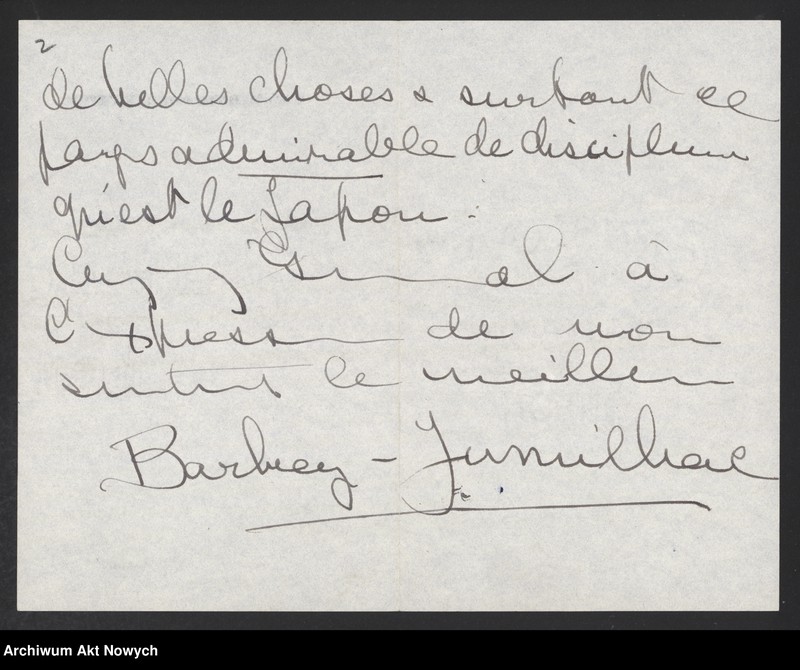 2
de belles choses & surtout ce
pays admirable de discipline
qu'est le Japon :
à
l'expression de mon
sentiment le meilleur
Barbey - Jumilhac
Archiwum Akt Nowych